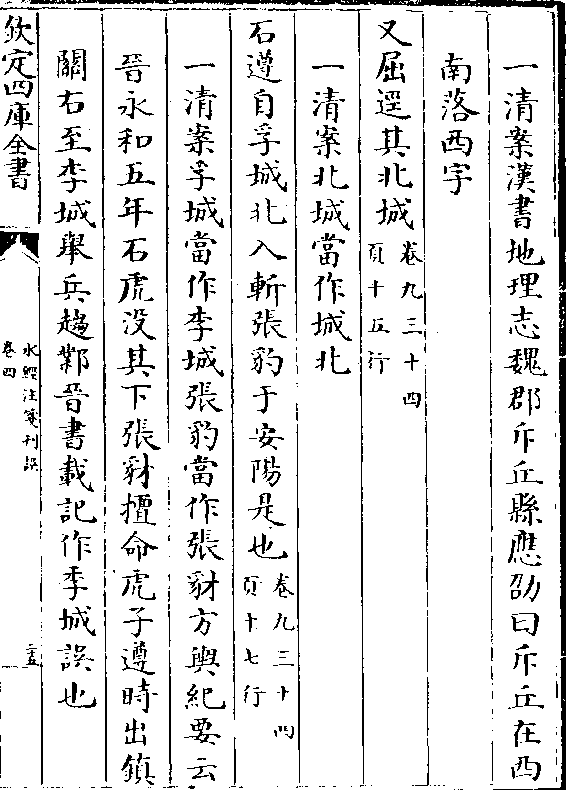 一清案漢書地理志魏郡斥丘縣應劭曰斥丘在西
南落西字
又屈逕其北城卷九三十四頁十五行
一清案北城當作城北
石遵自孚城北入斬張豹于安陽是也卷九三十四頁十七行
一清案孚城當作李城張豹當作張豺方輿紀要云
晉永和五年石虎没其下張豺擅命虎子遵時出鎮
關右至李城舉兵趨鄴晉書載記作季城誤也
欽定四庫全書
水經注箋刊誤
卷四